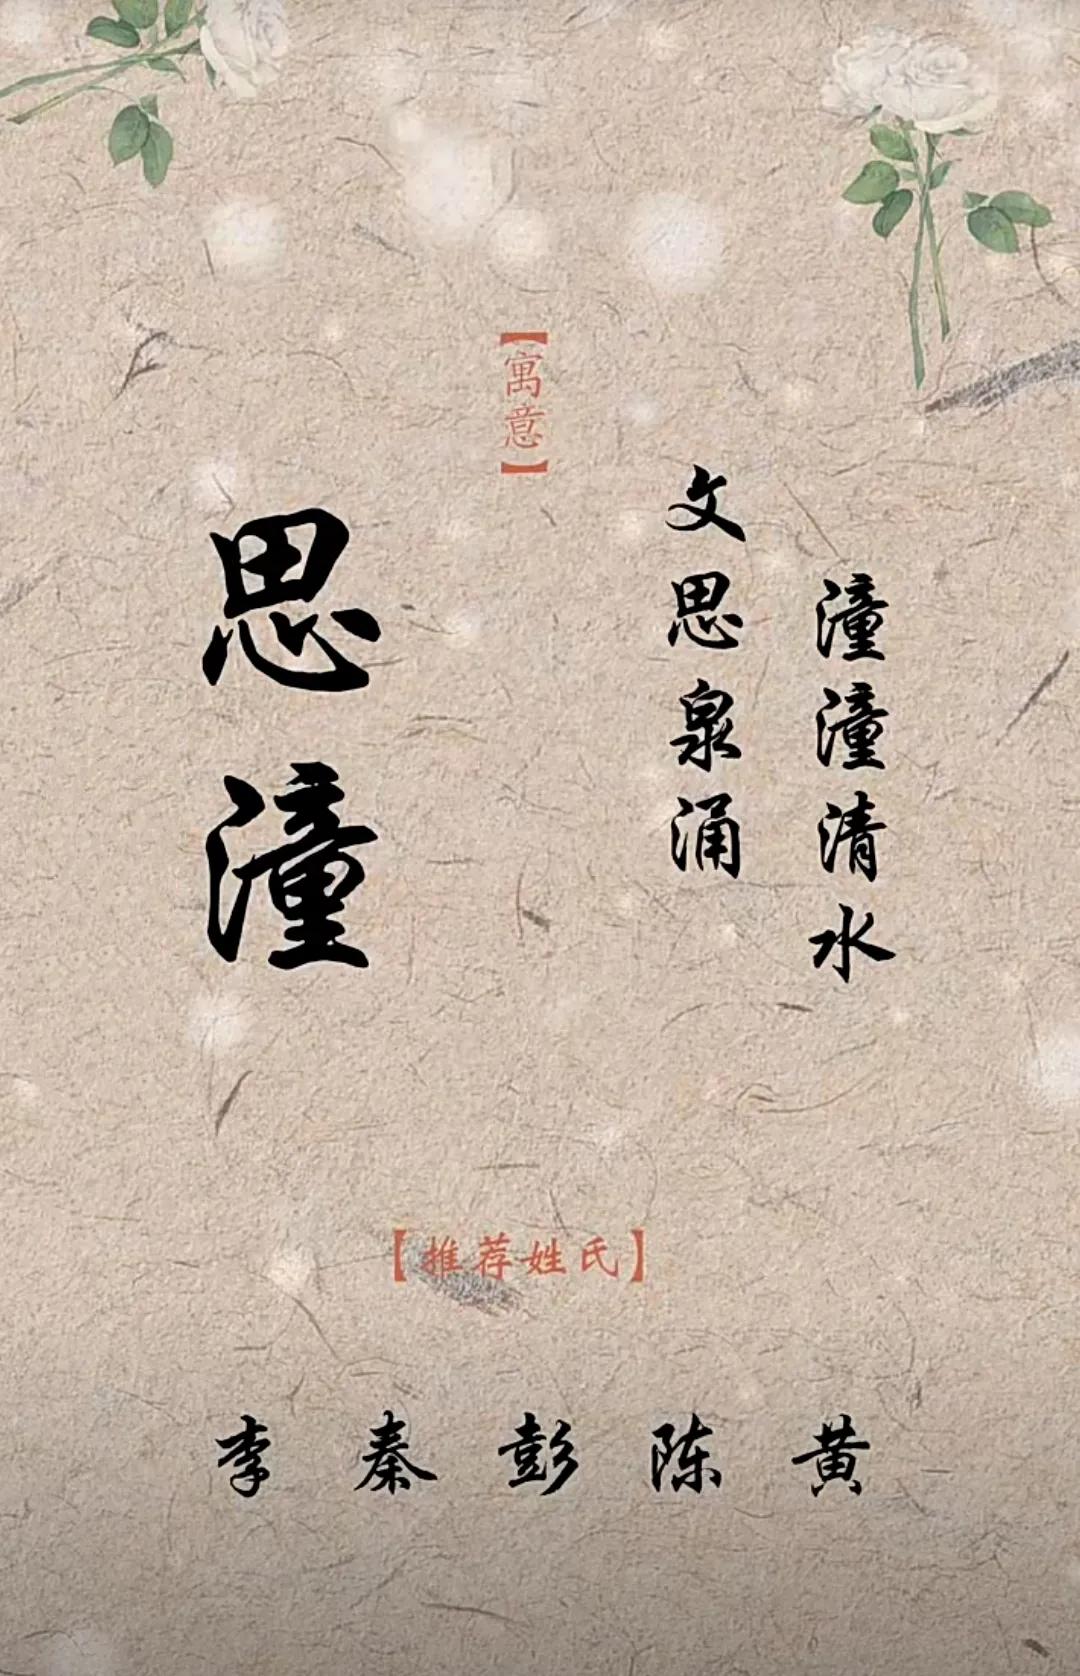 【寓意】
思潼
文思泉涌
潼潼清水
【推荐姓氏】
李 秦 彭 陈 黄